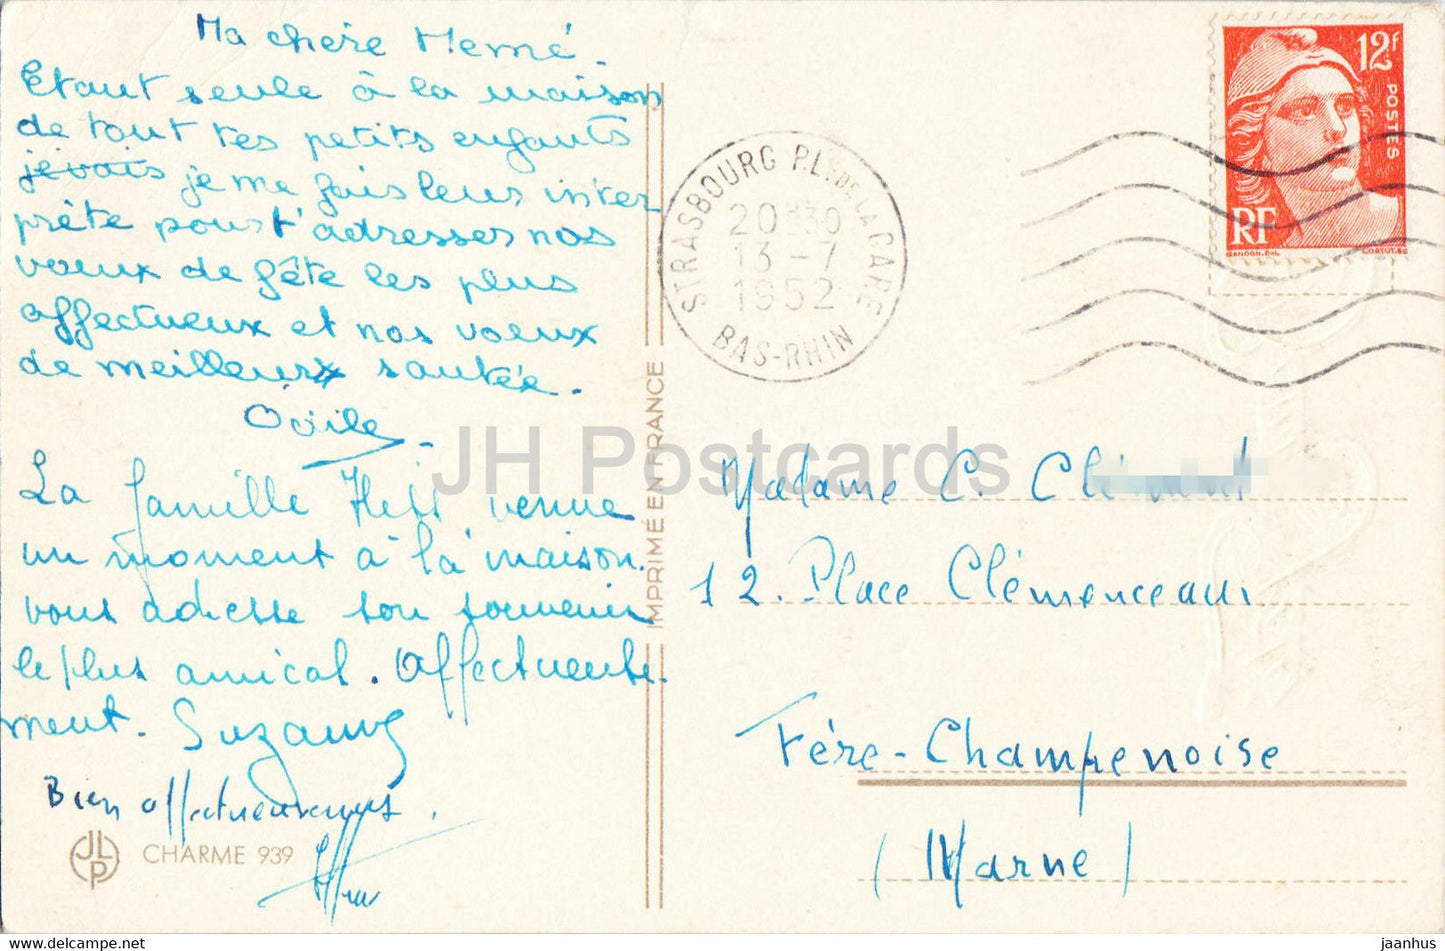 Ma chère Mémé.
Etant seule à la maison
de tout tes petits enfants
jevais je me fais leur inter
prète pour t'adresser nos
voeux de fête les plus
affectueux et nos voeux
de meilleurs santée.
Odile
La famille Heiss venue
un moment à la maison.
vous adresse son souvenir
le plus amical. Affectueuse-
ment. Suzanne
Bien affectueusement.
JLP
CHARME 939
IMPRIMÉ EN FRANCE
STRASBOURG P.L. DE LA GARE
20H30
13-7
1952
BAS-RHIN
12F
POSTES
RF
GANDON. DEL.
CORTOT. SC
JH Postcards
Madame C.
12. Place Clémenceau
Fère-Champenoise
(Marne)
www.hippostcard.com/store/jaanhus